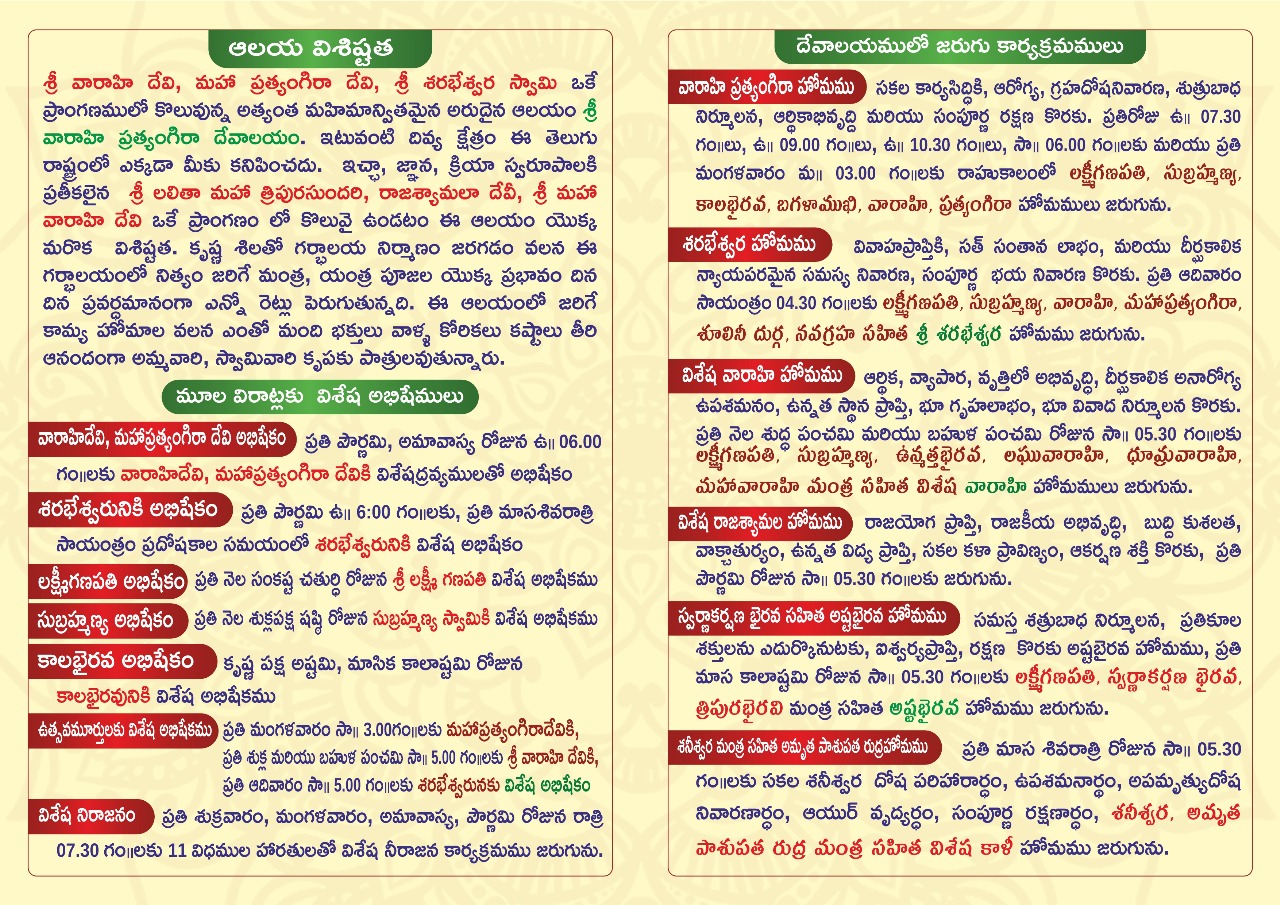 ఆలయ విశిష్టత
శ్రీ వారాహి దేవి, మహా ప్రత్యంగిరా దేవి, శ్రీ శరభేశ్వర స్వామి ఒకే
ప్రాంగణములో కొలువున్న అత్యంత మహిమాన్వితమైన అరుదైన ఆలయం శ్రీ
వారాహి ప్రత్యంగిరా దేవాలయం. ఇటువంటి దివ్య క్షేత్రం ఈ తెలుగు
రాష్ట్రంలో ఎక్కడా మీకు కనిపించదు. ఇచ్ఛా, జ్ఞాన, క్రియా స్వరూపాలకి
ప్రతీకలైన శ్రీ లలితా మహా త్రిపురసుందరి, రాజశ్యామలా దేవీ, శ్రీ మహా
వారాహి దేవి ఒకే ప్రాంగణం లో కొలువై ఉండటం ఈ ఆలయం యొక్క
మరొక విశిష్టత. కృష్ణ శిలతో గర్భాలయ నిర్మాణం జరగడం వలన ఈ
గర్భాలయంలో నిత్యం జరిగే మంత్ర, యంత్ర పూజల యొక్క ప్రభావం దిన
దిన ప్రవర్ధమానంగా ఎన్నో రెట్లు పెరుగుతున్నది. ఈ ఆలయంలో జరిగే
కామ్య హోమాల వలన ఎంతో మంది భక్తులు వాళ్ళ కోరికలు కష్టాలు తీరి
ఆనందంగా అమ్మవారి, స్వామివారి కృపకు పాత్రులవుతున్నారు.
మూల విరాట్లకు విశేష అభిషేములు
వారాహిదేవి, మహాప్రత్యంగిరా దేవి అభిషేకం ప్రతి పౌర్ణమి, అమావాస్య రోజున ఉ॥ 06.00
గం॥లకు వారాహిదేవి, మహాప్రత్యంగిరా దేవికి విశేషద్రవ్యములతో అభిషేకం
శరభేశ్వరునికి అభిషేకం ప్రతి పౌర్ణమి ఉ॥ 6:00 గం॥లకు, ప్రతి మాసశివరాత్రి
సాయంత్రం ప్రదోషకాల సమయంలో శరభేశ్వరునికి విశేష అభిషేకం
లక్ష్మీగణపతి అభిషేకం ప్రతి నెల సంకష్ట చతుర్ధి రోజున శ్రీ లక్ష్మీ గణపతి విశేష అభిషేకము
సుబ్రహ్మణ్య అభిషేకం ప్రతి నెల శుక్లపక్ష షష్ఠి రోజున సుబ్రహ్మణ్య స్వామికి విశేష అభిషేకము
కాలభైరవ అభిషేకం కృష్ణ పక్ష అష్టమి, మాసిక కాలాష్టమి రోజున
కాలభైరవునికి విశేష అభిషేకము
ఉత్సవమూర్తులకు విశేష అభిషేకము ప్రతి మంగళవారం సా॥ 3.00గం॥లకు మహాప్రత్యంగిరాదేవికి,
ప్రతి శుక్ల మరియు బహుళ పంచమి సా॥ 5.00 గం॥లకు శ్రీ వారాహి దేవికి,
ప్రతి ఆదివారం సా॥ 5.00 గం॥లకు శరభేశ్వరునకు విశేష అభిషేకం
విశేష నిరాజనం ప్రతి శుక్రవారం, మంగళవారం, అమావాస్య, పౌర్ణమి రోజున రాత్రి
07.30 గం॥లకు 11 విధముల హారతులతో విశేష నీరాజన కార్యక్రమము జరుగును.
దేవాలయములో జరుగు కార్యక్రమములు
వారాహి ప్రత్యంగిరా హోమము సకల కార్యసిద్ధికి, ఆరోగ్య, గ్రహదోషనివారణ, శుత్రుబాధ
నిర్మూలన, ఆర్థికాభివృద్ది మరియు సంపూర్ణ రక్షణ కొరకు. ప్రతిరోజు ఉ॥ 07.30
గం॥లు, ఉ॥ 09.00 గం॥లు, ఉ॥ 10.30 గం॥లు, సా॥ 06.00 గం॥లకు మరియు ప్రతి
మంగళవారం మ॥ 03.00 గం॥లకు రాహుకాలంలో లక్ష్మీగణపతి, సుబ్రహ్మణ్య,
కాలభైరవ, బగళాముఖి, వారాహి, ప్రత్యంగిరా హోమములు జరుగును.
శరభేశ్వర హోమము వివాహప్రాప్తికి, సత్ సంతాన లాభం, మరియు దీర్ఘకాలిక
న్యాయపరమైన సమస్య నివారణ, సంపూర్ణ భయ నివారణ కొరకు. ప్రతి ఆదివారం
సాయంత్రం 04.30 గం॥లకు లక్ష్మీగణపతి, సుబ్రహ్మణ్య, వారాహి, మహాప్రత్యంగిరా,
శూలినీ దుర్గ, నవగ్రహ సహిత శ్రీ శరభేశ్వర హోమము జరుగును.
విశేష వారాహి హోమము ఆర్థిక, వ్యాపార, వృత్తిలో అభివృద్ధి, దీర్ఘకాలిక అనారోగ్య
ఉపశమనం, ఉన్నత స్థాన ప్రాప్తి, భూ గృహలాభం, భూ వివాద నిర్మూలన కొరకు.
ప్రతి నెల శుద్ధ పంచమి మరియు బహుళ పంచమి రోజున సా॥ 05.30 గం॥లకు
లక్ష్మీగణపతి, సుబ్రహ్మణ్య, ఉన్మత్తభైరవ, లఘువారాహి, ధూమ్రవారాహి,
మహావారాహి మంత్ర సహిత విశేష వారాహి హోమములు జరుగును.
విశేష రాజశ్యామల హోమము రాజయోగ ప్రాప్తి, రాజకీయ అభివృద్ధి, బుద్ది కుశలత,
వాక్చాతుర్యం, ఉన్నత విద్య ప్రాప్తి, సకల కళా ప్రావిణ్యం, ఆకర్షణ శక్తి కొరకు, ప్రతి
పౌర్ణమి రోజున సా॥ 05.30 గం॥లకు జరుగును.
స్వర్ణాకర్షణ భైరవ సహిత అష్టభైరవ హోమము సమస్త శత్రుబాధ నిర్మూలన, ప్రతికూల
శక్తులను ఎదుర్కొనుటకు, ఐశ్వర్యప్రాప్తి, రక్షణ కొరకు అష్టభైరవ హోమము, ప్రతి
మాస కాలాష్టమి రోజున సా॥ 05.30 గం॥లకు లక్ష్మీగణపతి, స్వర్ణాకర్షణ భైరవ,
త్రిపురభైరవి మంత్ర సహిత అష్టభైరవ హోమము జరుగును.
శనీశ్వర మంత్ర సహిత అమృత పాశుపత రుద్రహోమము ప్రతి మాస శివరాత్రి రోజున సా॥ 05.30
గం॥లకు సకల శనీశ్వర దోష పరిహారార్ధం, ఉపశమనార్థం, అపమృత్యుదోష
నివారణార్ధం, ఆయుర్ వృద్యర్ధం, సంపూర్ణ రక్షణార్ధం, శనీశ్వర, అమృత
పాశుపత రుద్ర మంత్ర సహిత విశేష కాళీ హోమము జరుగును.